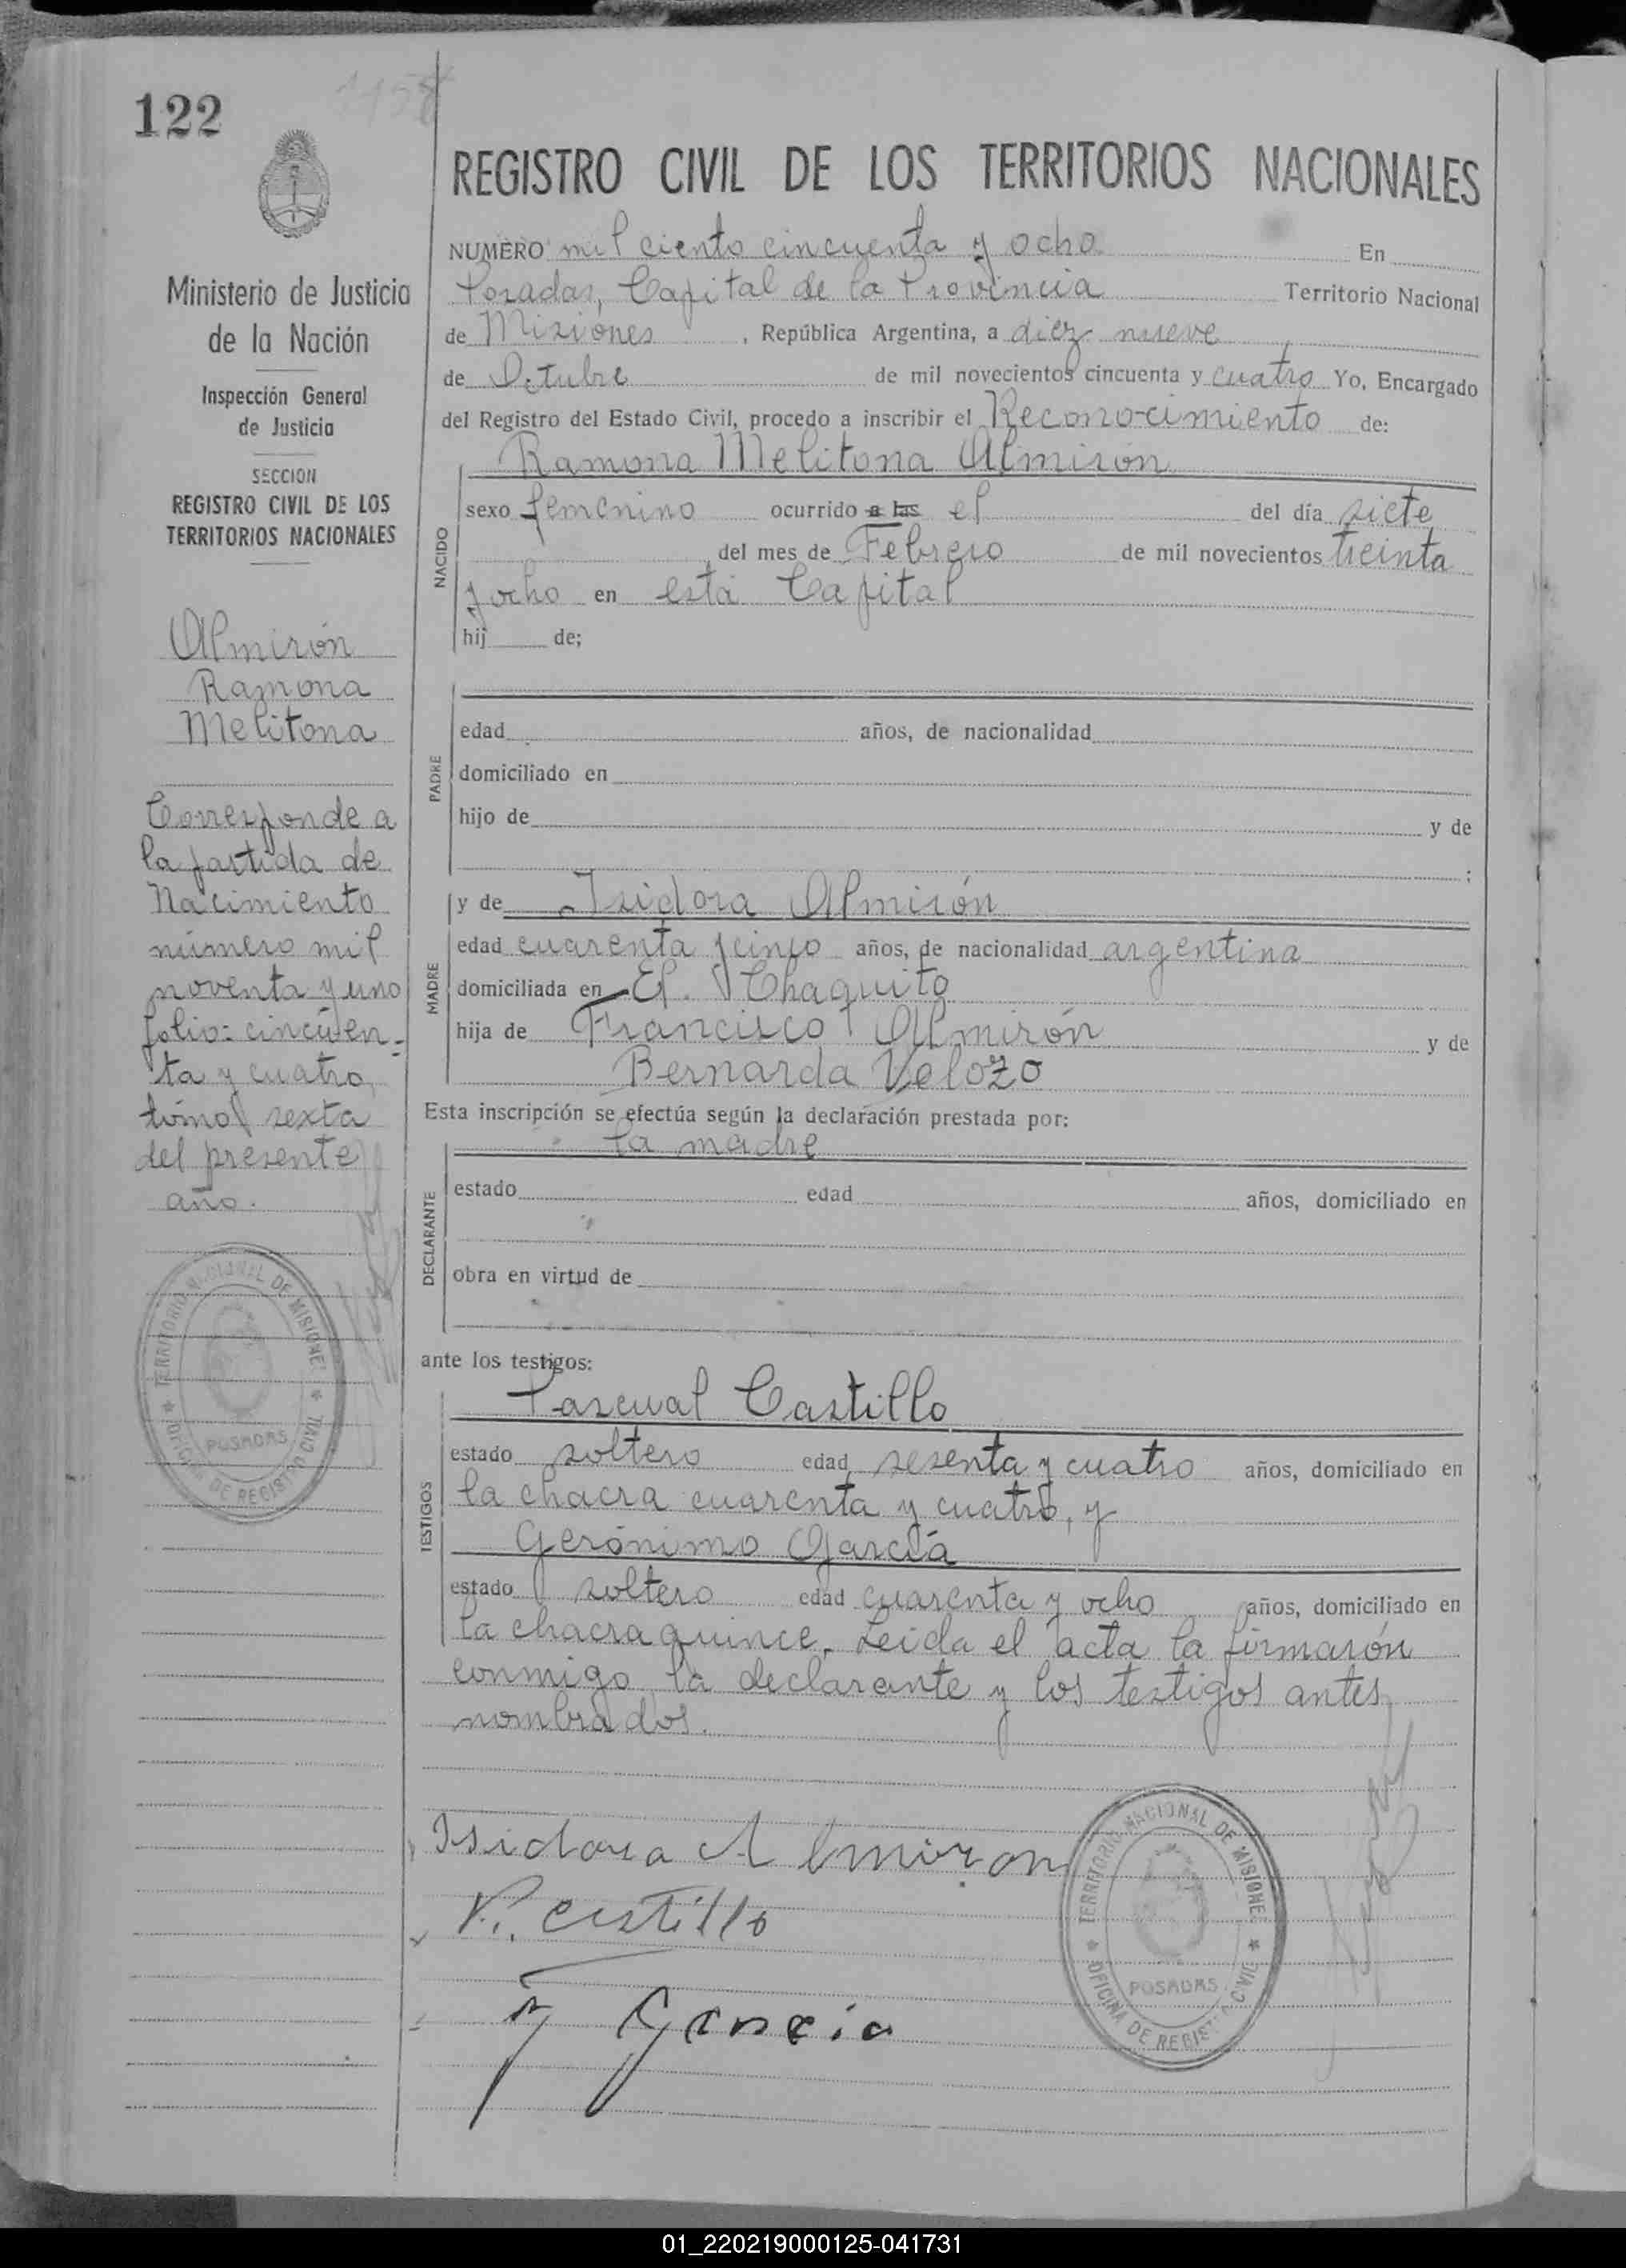 122
1158
REGISTRO CIVIL DE LOS TERRITORIOS NACIONALES
Ministerio de Justicia
de la Nación
Inspección General
de Justicia
SECCION
REGISTRO CIVIL DE LOS
TERRITORIOS NACIONALES
Almirón
Ramona
Melitona
Corresponde a
la partida de
Nacimiento
número mil
noventa y uno
folio: cincuen-
ta y cuatro,
tomo sexta
del presente
año.
TERRITORIO NACIONAL DE MISIONES
POSADAS
OFICINA DE REGISTRO CIVIL
NUMERO mil ciento cincuenta y ocho En
Posadas, Capital de la Provincia Territorio Nacional
de Misiones, República Argentina, a diez nueve
de Octubre de mil novecientos cincuenta y cuatro Yo, Encargado
del Registro del Estado Civil, procedo a inscribir el Reconocimiento de:
Ramona Melitona Almirón
NACIDO
sexo femenino ocurrido a las el del día siete
del mes de Febrero de mil novecientos treinta
y ocho en esta Capital
hij de;
PADRE
edad años, de nacionalidad
domiciliado en
hijo de y de
;
MADRE
y de Isidora Almirón
edad cuarenta y cinco años, de nacionalidad argentina
domiciliada en El Chaquito
hija de Francisco Almirón y de
Bernarda Velozo
Esta inscripción se efectúa según la declaración prestada por:
la madre
DECLARANTE
estado edad años, domiciliado en
obra en virtud de
ante los testigos:
TESTIGOS
Pascual Castillo
estado soltero edad sesenta y cuatro años, domiciliado en
la chacra cuarenta y cuatro, y
Gerónimo García
estado soltero edad cuarenta y ocho años, domiciliado en
la chacra quince. Leida el acta la firmarón
conmigo la declarante y los testigos antes
nombrados.
Isidora Almiron
P. Castillo
J Garcia
TERRITORIO NACIONAL DE MISIONES
POSADAS
OFICINA DE REGISTRO CIVIL
01_220219000125-041731